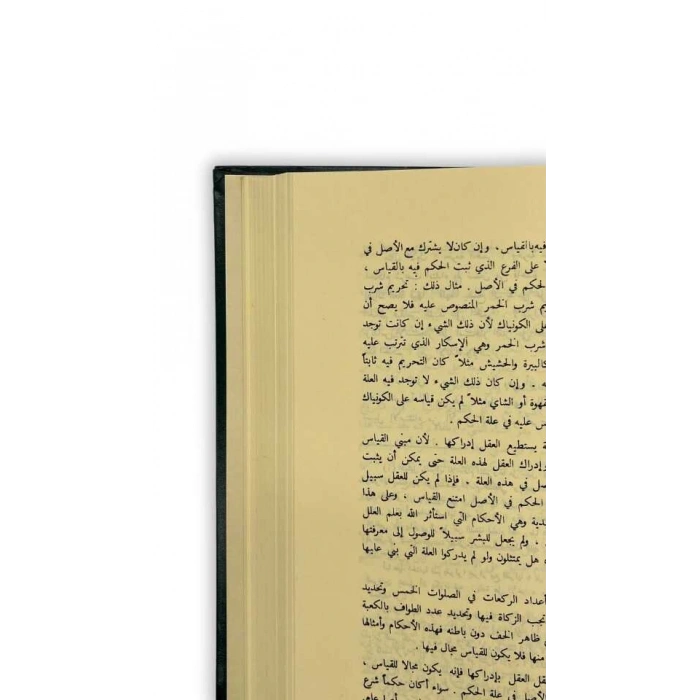 فيه بالقياس، وإن كان لا يشترك مع الأصل في
على الفرع الذي ثبت الحكم فيه بالقياس ،
الحكم في الأصل . مثال ذلك : تحريم شرب
شرب الخمر المنصوص عليه فلا يصح أن
على الكونياك لأن ذلك الشيء إن كانت توجد
شرب الخمر وهي الإسكار الذي تترتب عليه
كالبيرة والحشيش مثلاً كان التحريم فيه ثابتاً
ـه ـ وإن كان ذلك الشيء لا توجد فيه العلة
قهوة أو الشاي مثلاً لم يكن قياسه على الكونياك
س عليه في علة الحكم .
يستطيع العقل إدراكها . لأن مبنى القياس
إدراك العقل لهذه العلة حتى يمكن أن يثبت
صل في هذه العلة . فإذا لم يكن للعقل سبيل
الحكم في الأصل امتنع القياس ، وعلى هذا
وهي الأحكام التي استأثر الله بعلم العلل
، ولم يجعل للبشر سبيلاً للوصول إلى معرفتها
هل يمتثلون ولو لم يدركوا العلة التي بني عليها
أعداد الركعات في الصلوات الخمس وتحديد
تجب الزكاة فيها وتحديد عدد الطواف بالكعبة
ظاهر الخف دون باطنه فهذه الأحكام وأمثالها
منها فلا يكون للقياس مجال فيها .
العقل بإدراكها فإنه يكون مجالا للقياس ،
لأصل في علة الحكم . سواء أكان حكماً شرع